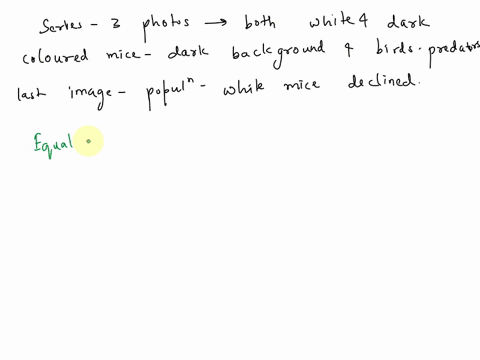 Series - 3 photos → both white & dark
coloured mice - dark background & birds - predators
last image - populⁿ - white mice declined.
Equal